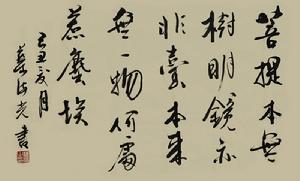 菩提本無
樹明鏡亦
非臺本來
無一物何處
惹塵埃
己丑夏月
書